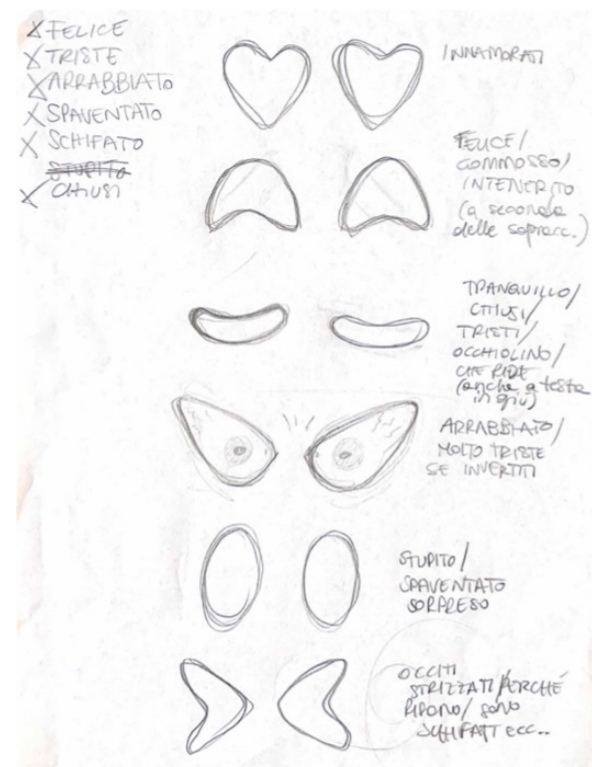 X FELICE
X TRISTE
X ARRABBIATO
X SPAVENTATO
X SCHIFATO
STUPITO
X CHIUSI
INNAMORATI
FELICE/
COMMOSSO/
INTENERITO
(a seconda
delle sopracc.)
TRANQUILLO/
CHIUSI/
TRISTI/
OCCHIOLINO/
CHE RIDE
(anche a testa
in giù)
ARRABBIATO/
MOLTO TRISTE
SE INVERTITI
STUPITO/
SPAVENTATO
SORPRESO
OCCHI
STRIZZATI/PERCHÉ
RIDONO/SONO
SCHIFATI ecc..